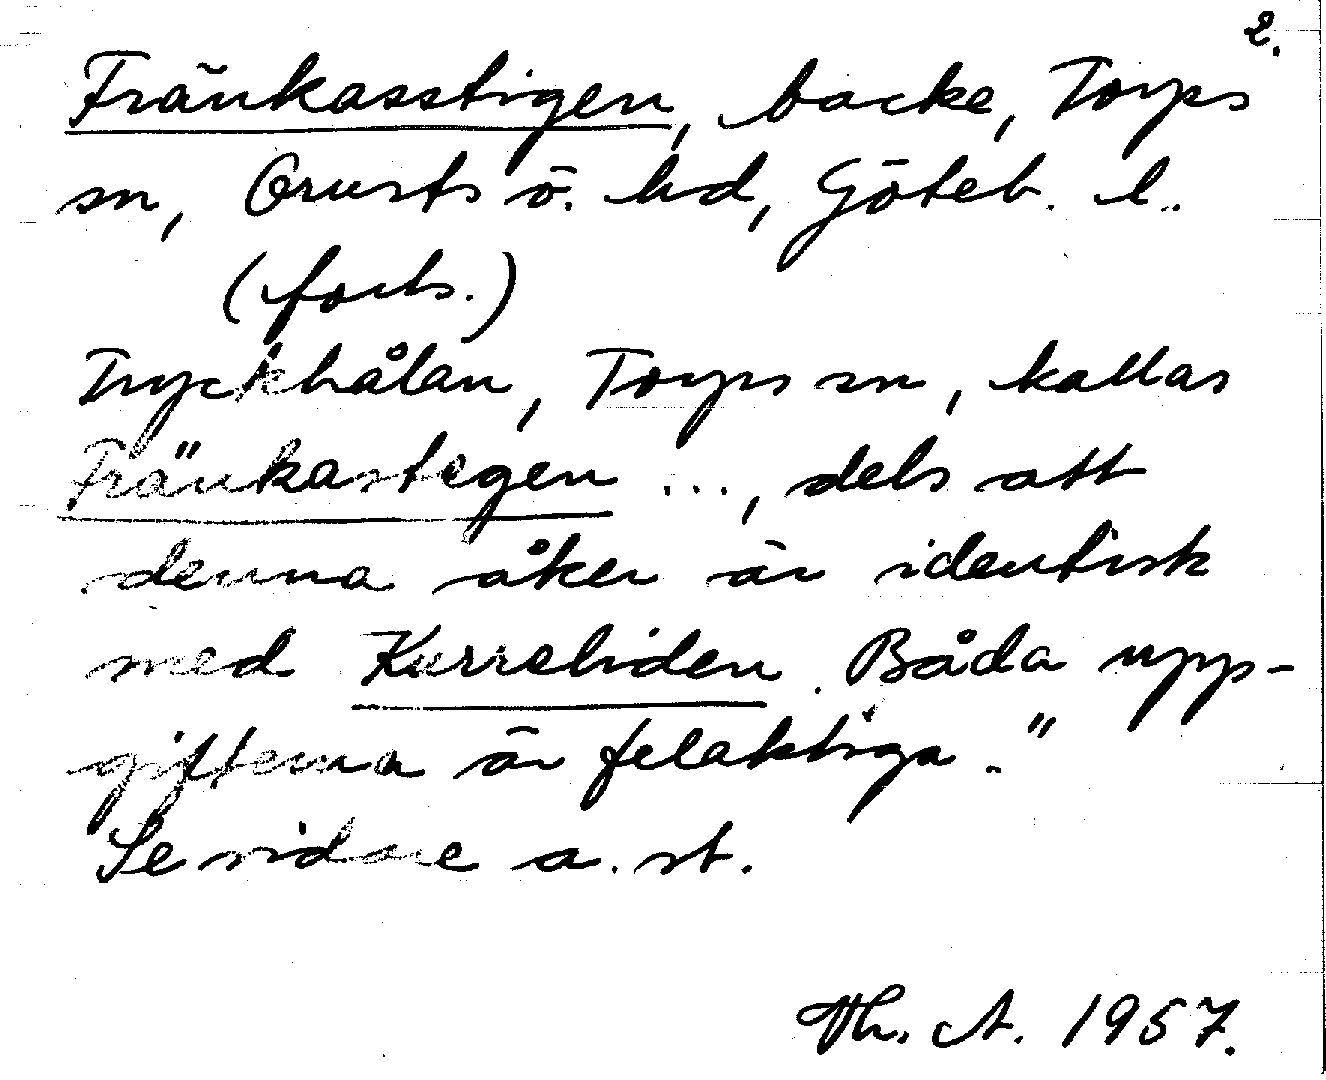 2.
Fränkasstigen, backe, Torps
sn, Orusts ö. hd, Göteb. l.
(forts.)
Tryckhålan, Torps sn, kallas
Fränkastegen ..., dels att
denna åker är identisk
med Kurreliden. Båda upp-
gifterna är felaktiga."
Se vidare a. st.
Th. A. 1957.